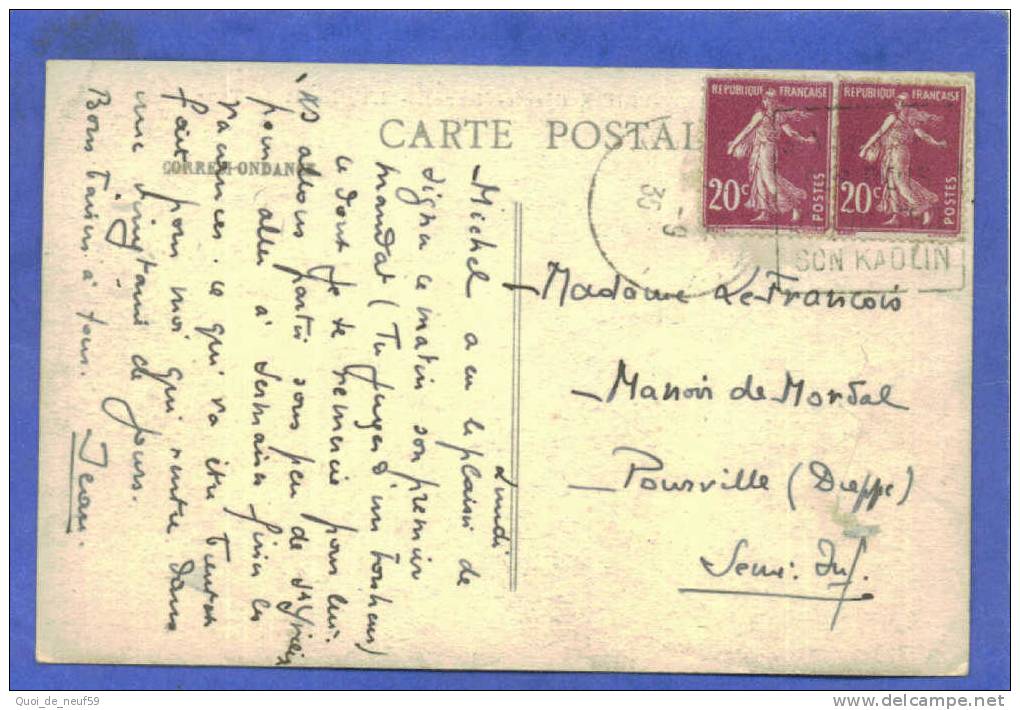 CARTE POSTAL
CORRESPONDANCE
REPUBLIQUE FRANÇAISE
20c
POSTES
REPUBLIQUE FRANÇAISE
20c
POSTES
35
SON KAOLIN
Lundi
Michel a eu le plaisir de
signer ce matin son premier
mandat (Tu juges d'un bonheur)
ce dont je te remercie pour lui.
Ns allons partir sous peu de St Yrieix
pour aller à finir les
vacances ce qui va être
fait pour moi qui rentre dans
une vingtaine de jours.
Bons baisers à tous.
Jean.
Madame Le Francois
Manoir de Mordal
Pourville (Dieppe)
Seine. Inf.
Quoi_de_neuf59
www.delcampe.net